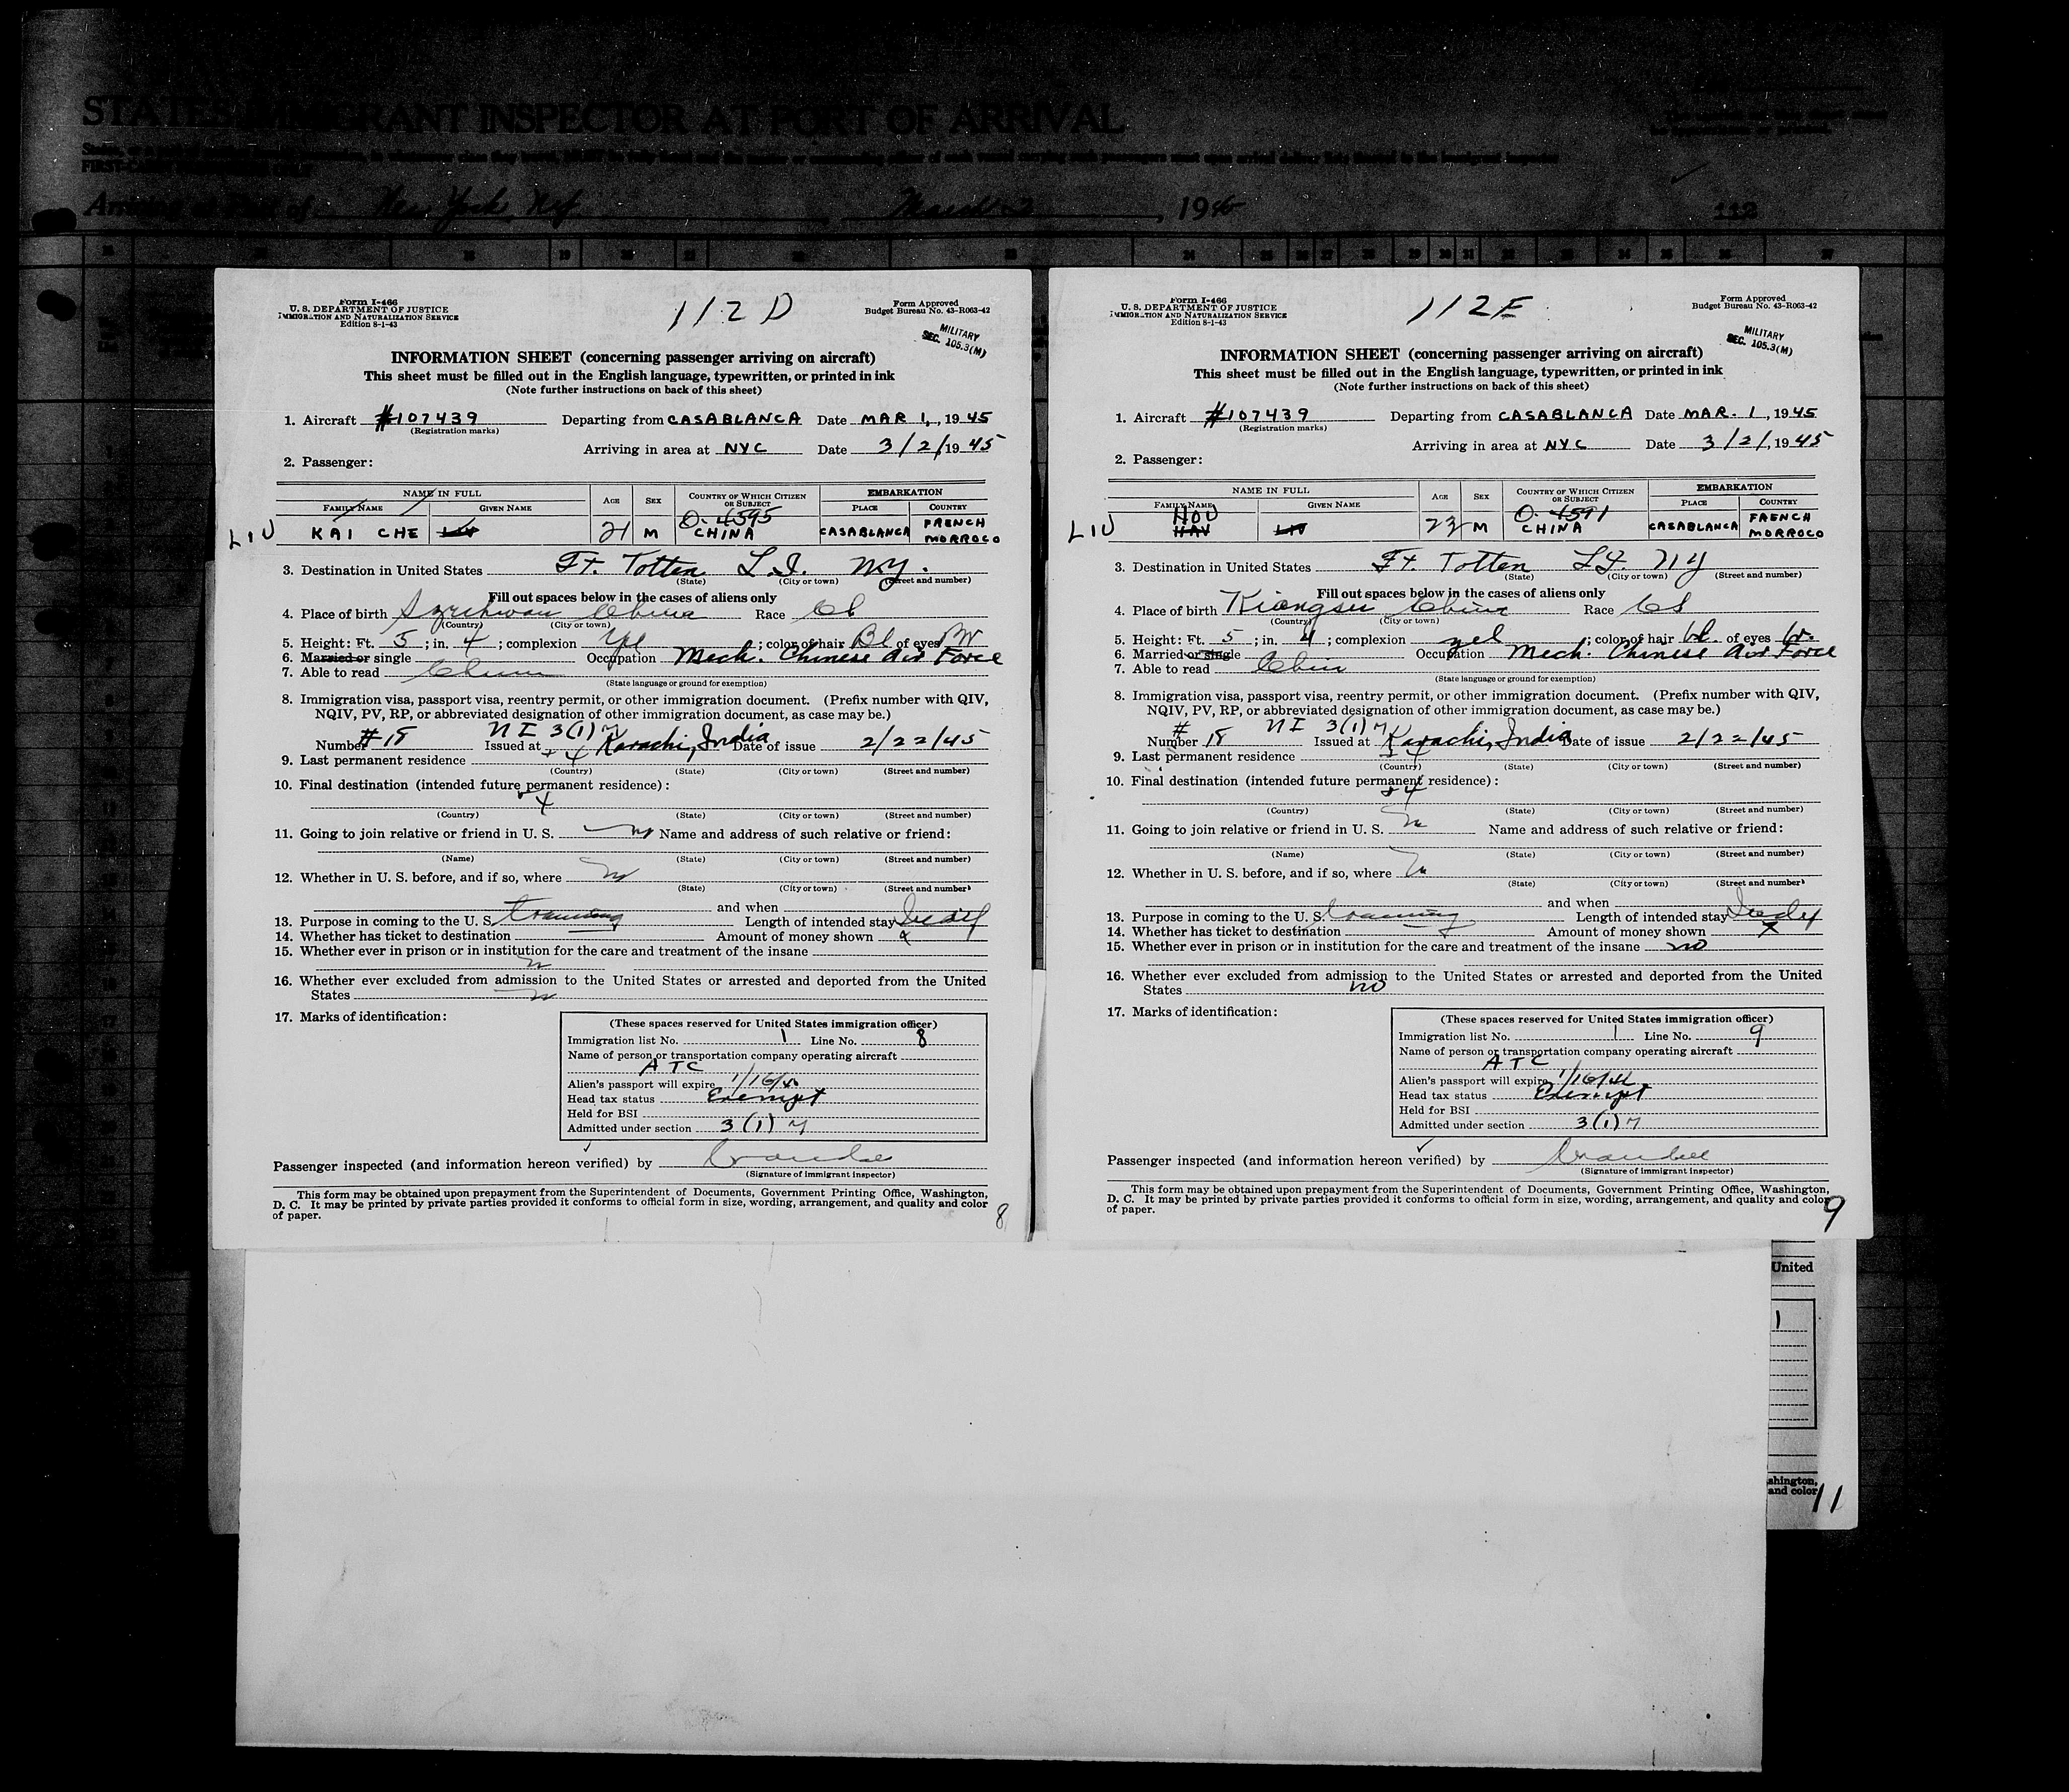 STATES IMMIGRANT INSPECTOR AT PORT OF ARRIVAL
Arriving at Port of New York, N.Y. March 2, 1945
112
Form I-466
U. S. DEPARTMENT OF JUSTICE
IMMIGRATION AND NATURALIZATION SERVICE
Edition 8-1-43
112 D
Form Approved
Budget Bureau No. 43-R063-42
MILITARY
SEC. 105.3(M)
INFORMATION SHEET (concerning passenger arriving on aircraft)
This sheet must be filled out in the English language, typewritten, or printed in ink
(Note further instructions on back of this sheet)
1. Aircraft #107439 Departing from CASABLANCA Date MAR 1, 1945
(Registration marks)
Arriving in area at NYC Date 3/2/1945
2. Passenger:
NAME IN FULL AGE SEX COUNTRY OF WHICH CITIZEN OR SUBJECT EMBARKATION
FAMILY NAME GIVEN NAME PLACE COUNTRY
O-4595
LIU KAI CHE 21 M CHINA CASABLANCA FRENCH MORROCO
3. Destination in United States Ft. Totten L.I. N.Y.
(State) (City or town) (Street and number)
Fill out spaces below in the cases of aliens only
4. Place of birth China Race Ch
(Country) (City or town)
5. Height: Ft. 5 ; in. 4 ; complexion Yel ; color of hair Bl of eyes Br
6. Married or single Occupation Mech. Chinese Air Force
7. Able to read
(State language or ground for exemption)
8. Immigration visa, passport visa, reentry permit, or other immigration document. (Prefix number with QIV,
NQIV, PV, RP, or abbreviated designation of other immigration document, as case may be.)
NI 3(1)7
Number #18 Issued at Karachi, India Date of issue 2/22/45
9. Last permanent residence
(Country) (State) (City or town) (Street and number)
10. Final destination (intended future permanent residence):
(Country) (State) (City or town) (Street and number)
11. Going to join relative or friend in U. S. no Name and address of such relative or friend:
(Name) (State) (City or town) (Street and number)
12. Whether in U. S. before, and if so, where no
(State) (City or town) (Street and number)
and when
13. Purpose in coming to the U. S. training Length of intended stay
14. Whether has ticket to destination Amount of money shown x
15. Whether ever in prison or in institution for the care and treatment of the insane
no
16. Whether ever excluded from admission to the United States or arrested and deported from the United
States no
17. Marks of identification:
(These spaces reserved for United States immigration officer)
Immigration list No. 1 Line No. 8
Name of person or transportation company operating aircraft
ATC
Alien's passport will expire 1/16/46
Head tax status Exempt
Held for BSI
Admitted under section 3(1)7
Passenger inspected (and information hereon verified) by Crandell
(Signature of immigrant inspector)
This form may be obtained upon prepayment from the Superintendent of Documents, Government Printing Office, Washington,
D. C. It may be printed by private parties provided it conforms to official form in size, wording, arrangement, and quality and color
of paper.
8
Form I-466
U. S. DEPARTMENT OF JUSTICE
IMMIGRATION AND NATURALIZATION SERVICE
Edition 8-1-43
112E
Form Approved
Budget Bureau No. 43-R063-42
MILITARY
SEC. 105.3(M)
INFORMATION SHEET (concerning passenger arriving on aircraft)
This sheet must be filled out in the English language, typewritten, or printed in ink
(Note further instructions on back of this sheet)
1. Aircraft #107439 Departing from CASABLANCA Date MAR. 1, 1945
(Registration marks)
Arriving in area at NYC Date 3/2/, 1945
2. Passenger:
NAME IN FULL AGE SEX COUNTRY OF WHICH CITIZEN OR SUBJECT EMBARKATION
FAMILY NAME GIVEN NAME PLACE COUNTRY
HOU O-4591
LIU HAV 23 M CHINA CASABLANCA FRENCH MORROCO
3. Destination in United States Ft. Totten L.I. N Y
(State) (City or town) (Street and number)
Fill out spaces below in the cases of aliens only
4. Place of birth Kiangsu China Race Ch
(Country) (City or town)
5. Height: Ft. 5 ; in. 4 ; complexion yel ; color of hair bl. of eyes br.
6. Married or single Occupation Mech. Chinese Air Force
7. Able to read Chin
(State language or ground for exemption)
8. Immigration visa, passport visa, reentry permit, or other immigration document. (Prefix number with QIV,
NQIV, PV, RP, or abbreviated designation of other immigration document, as case may be.)
NI 3(1)7
Number #18 Issued at Karachi, India Date of issue 2/22/45
9. Last permanent residence
(Country) (State) (City or town) (Street and number)
10. Final destination (intended future permanent residence):
(Country) (State) (City or town) (Street and number)
11. Going to join relative or friend in U. S. no Name and address of such relative or friend:
(Name) (State) (City or town) (Street and number)
12. Whether in U. S. before, and if so, where no
(State) (City or town) (Street and number)
and when
13. Purpose in coming to the U. S. training Length of intended stay
14. Whether has ticket to destination Amount of money shown x
15. Whether ever in prison or in institution for the care and treatment of the insane no
16. Whether ever excluded from admission to the United States or arrested and deported from the United
States no
17. Marks of identification:
(These spaces reserved for United States immigration officer)
Immigration list No. 1 Line No. 9
Name of person or transportation company operating aircraft
ATC
Alien's passport will expire 1/16/46
Head tax status Exempt
Held for BSI
Admitted under section 3(1)7
Passenger inspected (and information hereon verified) by Crandell
(Signature of immigrant inspector)
This form may be obtained upon prepayment from the Superintendent of Documents, Government Printing Office, Washington,
D. C. It may be printed by private parties provided it conforms to official form in size, wording, arrangement, and quality and color
of paper.
9
United
1
shington,
and color
11